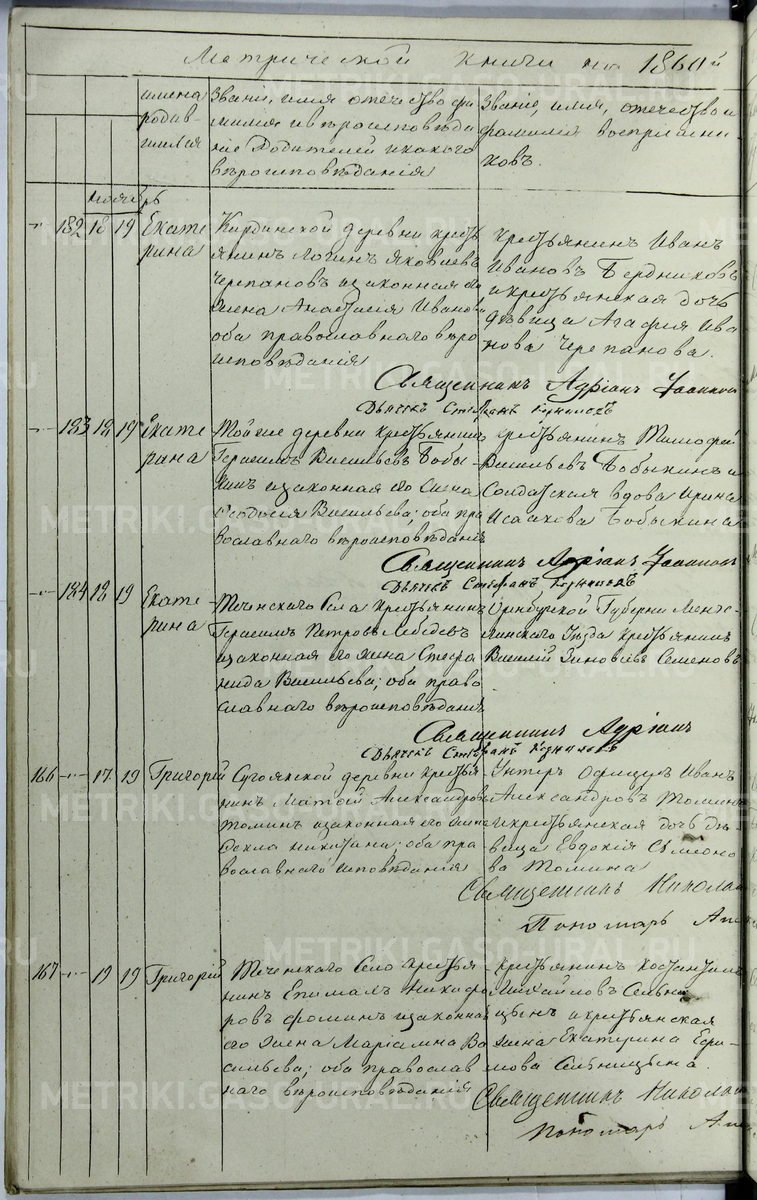 Метрической книги на 1860й
имена
родив-
шихся
Званiе, имя отечество фа
милiя и вѣроисповѣда
нiе Родителей и какого
вѣроисповѣданiя
Званiе, имя, отечество и
фамилiя восприемни
ковъ.
ноябрь
182 18 19
Екате
рина
Кирдинской деревни кресть
янинъ Логинъ Яковлевъ
Черепановъ изаконная его
жена Анастасiя Иванова
оба православнаго вѣро
исповѣданiя
Крестьянинъ Иванъ
Ивановъ Бердниковъ
и крестьянская дочь
дѣвица Агафiя Ива
нова Черепанова.
Священникъ Адрiанъ
Дьячекъ Стефанъ
183 18 19
Екате
рина
Той же деревни крестьянинъ
Герасимъ Васильевъ Бобы
кинъ изаконная его жена
Ѳеодосiя Васильева; оба пра
вославнаго вѣроисповѣданiя
Крестьянинъ Тимофей
Васильевъ Бобыкинъ и
Солдатская вдова Ирина
Исакова Бобыкина
Священникъ Адрiанъ
Дьячекъ Стефанъ
184 18 19
Екате
рина
Теченскаго Села крестьянинъ
Герасимъ Петровъ Лебедевъ
изаконная его жена Стефа
нида Васильева; оба право
славнаго вѣроисповѣданiя
Оренбурской Губернiи Мензе-
линскаго Уѣзда крестьянинъ
Василiй Зиновьевъ Семеновъ
Священникъ Адрiанъ
Дьячекъ Стефанъ
166 17 19
Григорiй
Сугоякской деревни крестья
нинъ Матѳей Александровъ
Томинъ изаконная его жена
Ѳекла Никитина; оба пра
вославнаго исповѣданiя
Унтеръ Офицеръ Иванъ
Александровъ Томинъ
и крестьянская дочь дѣ-
вица Евдокiя Семено
ва Томина
Священникъ Николай
Пономарь
167 19 19
Григорiй
Теченскаго Села крестья
нинъ Епимахъ Никифо
ровъ Фоминъ изаконная
его жена Марiамна Ва
сильева; оба православ
наго вѣроисповѣданiя
Крестьянинъ Костантинъ
Михайловъ Сельни
цынъ и крестьянская
жена Екатерина Ефи-
мова Сельницына.
Священникъ Николай
Пономарь
METRIKI.GASO-URAL.RU